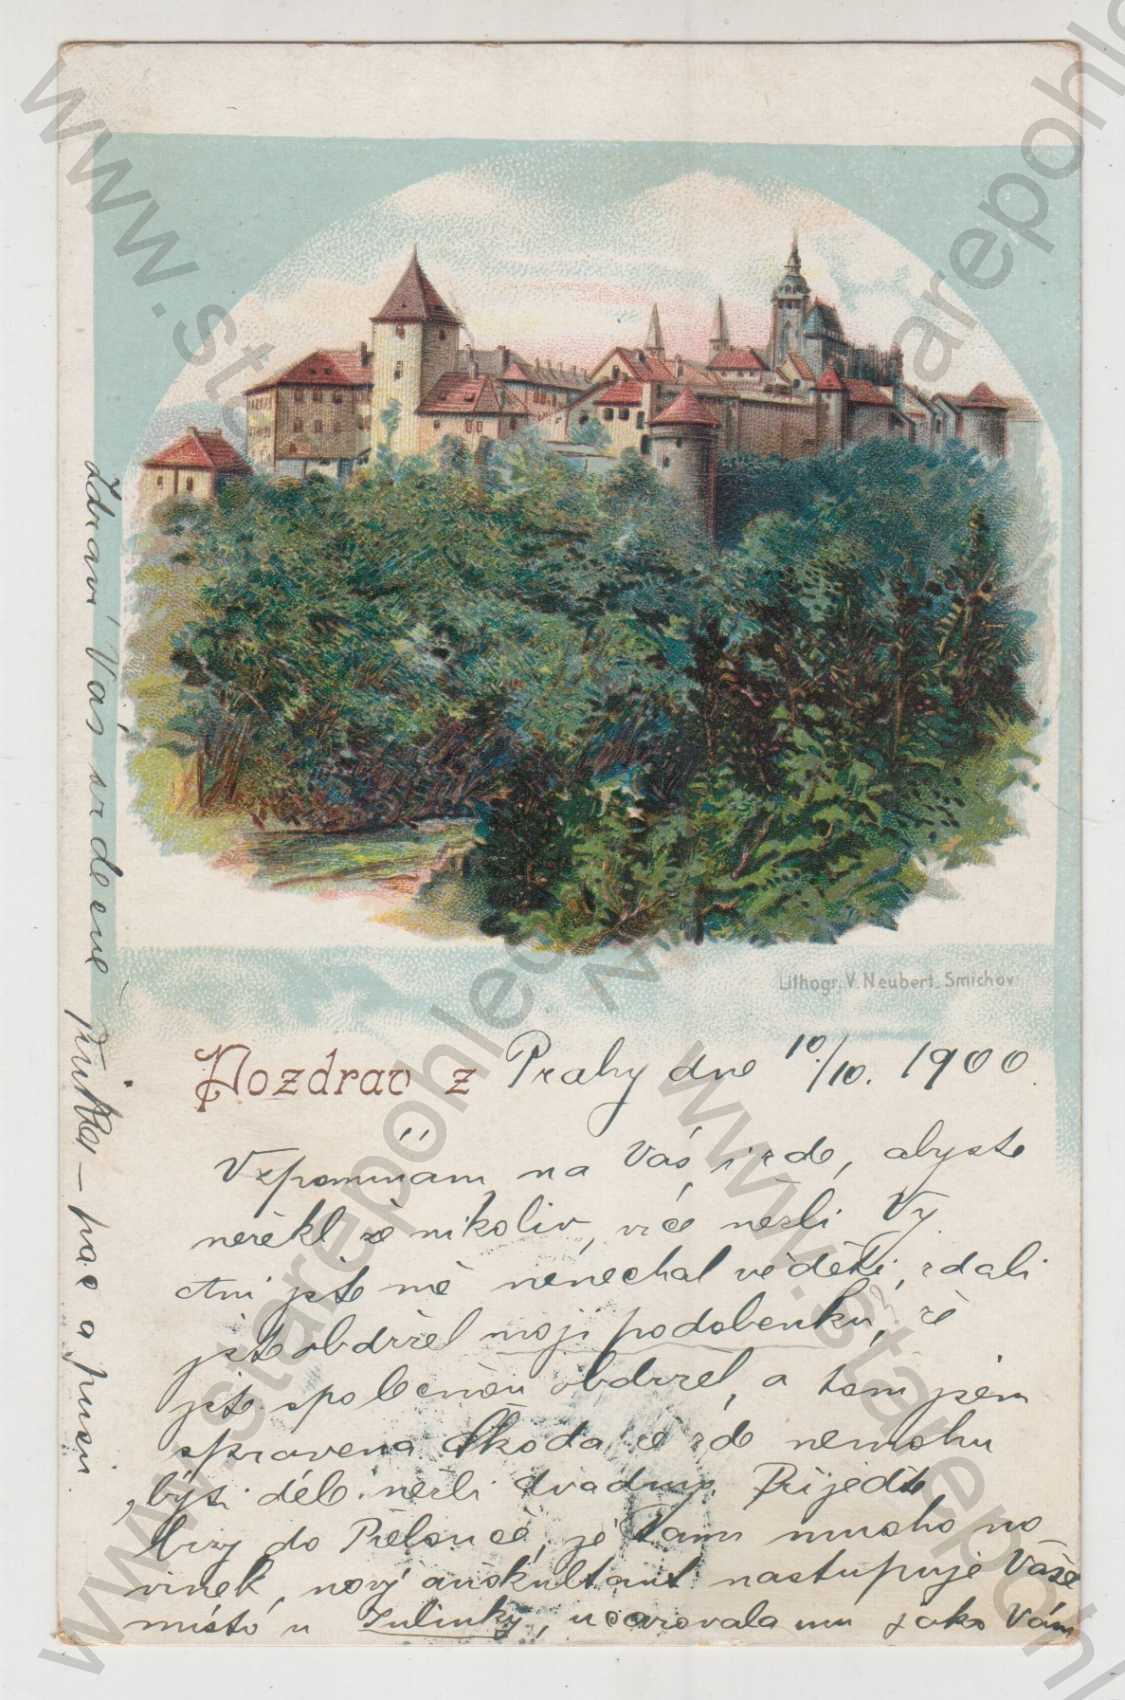 Lithogr. V. Neubert, Smichov
Pozdrav z Prahy dne 10./10. 1900.
Vzpomínám na Vás i zde, abyste
neřekl že nikoliv, více nežli Vy.
Ani jste mě nenechal věděti, zdali
jste obdržel moji podobenku, že
jste společnou obdržel, a tam jsem
zpravena Škoda že zde nemohu
býti déle nežli dva dny. Přijeďte
brzy do Přelouče, je tam mnoho no-
vinek, nový auskultant nastupuje Vaše
místo u Julinky, učarovala mu jako Vám
Zdraví Vás srdečně
pac a pusu
www.starepohledy